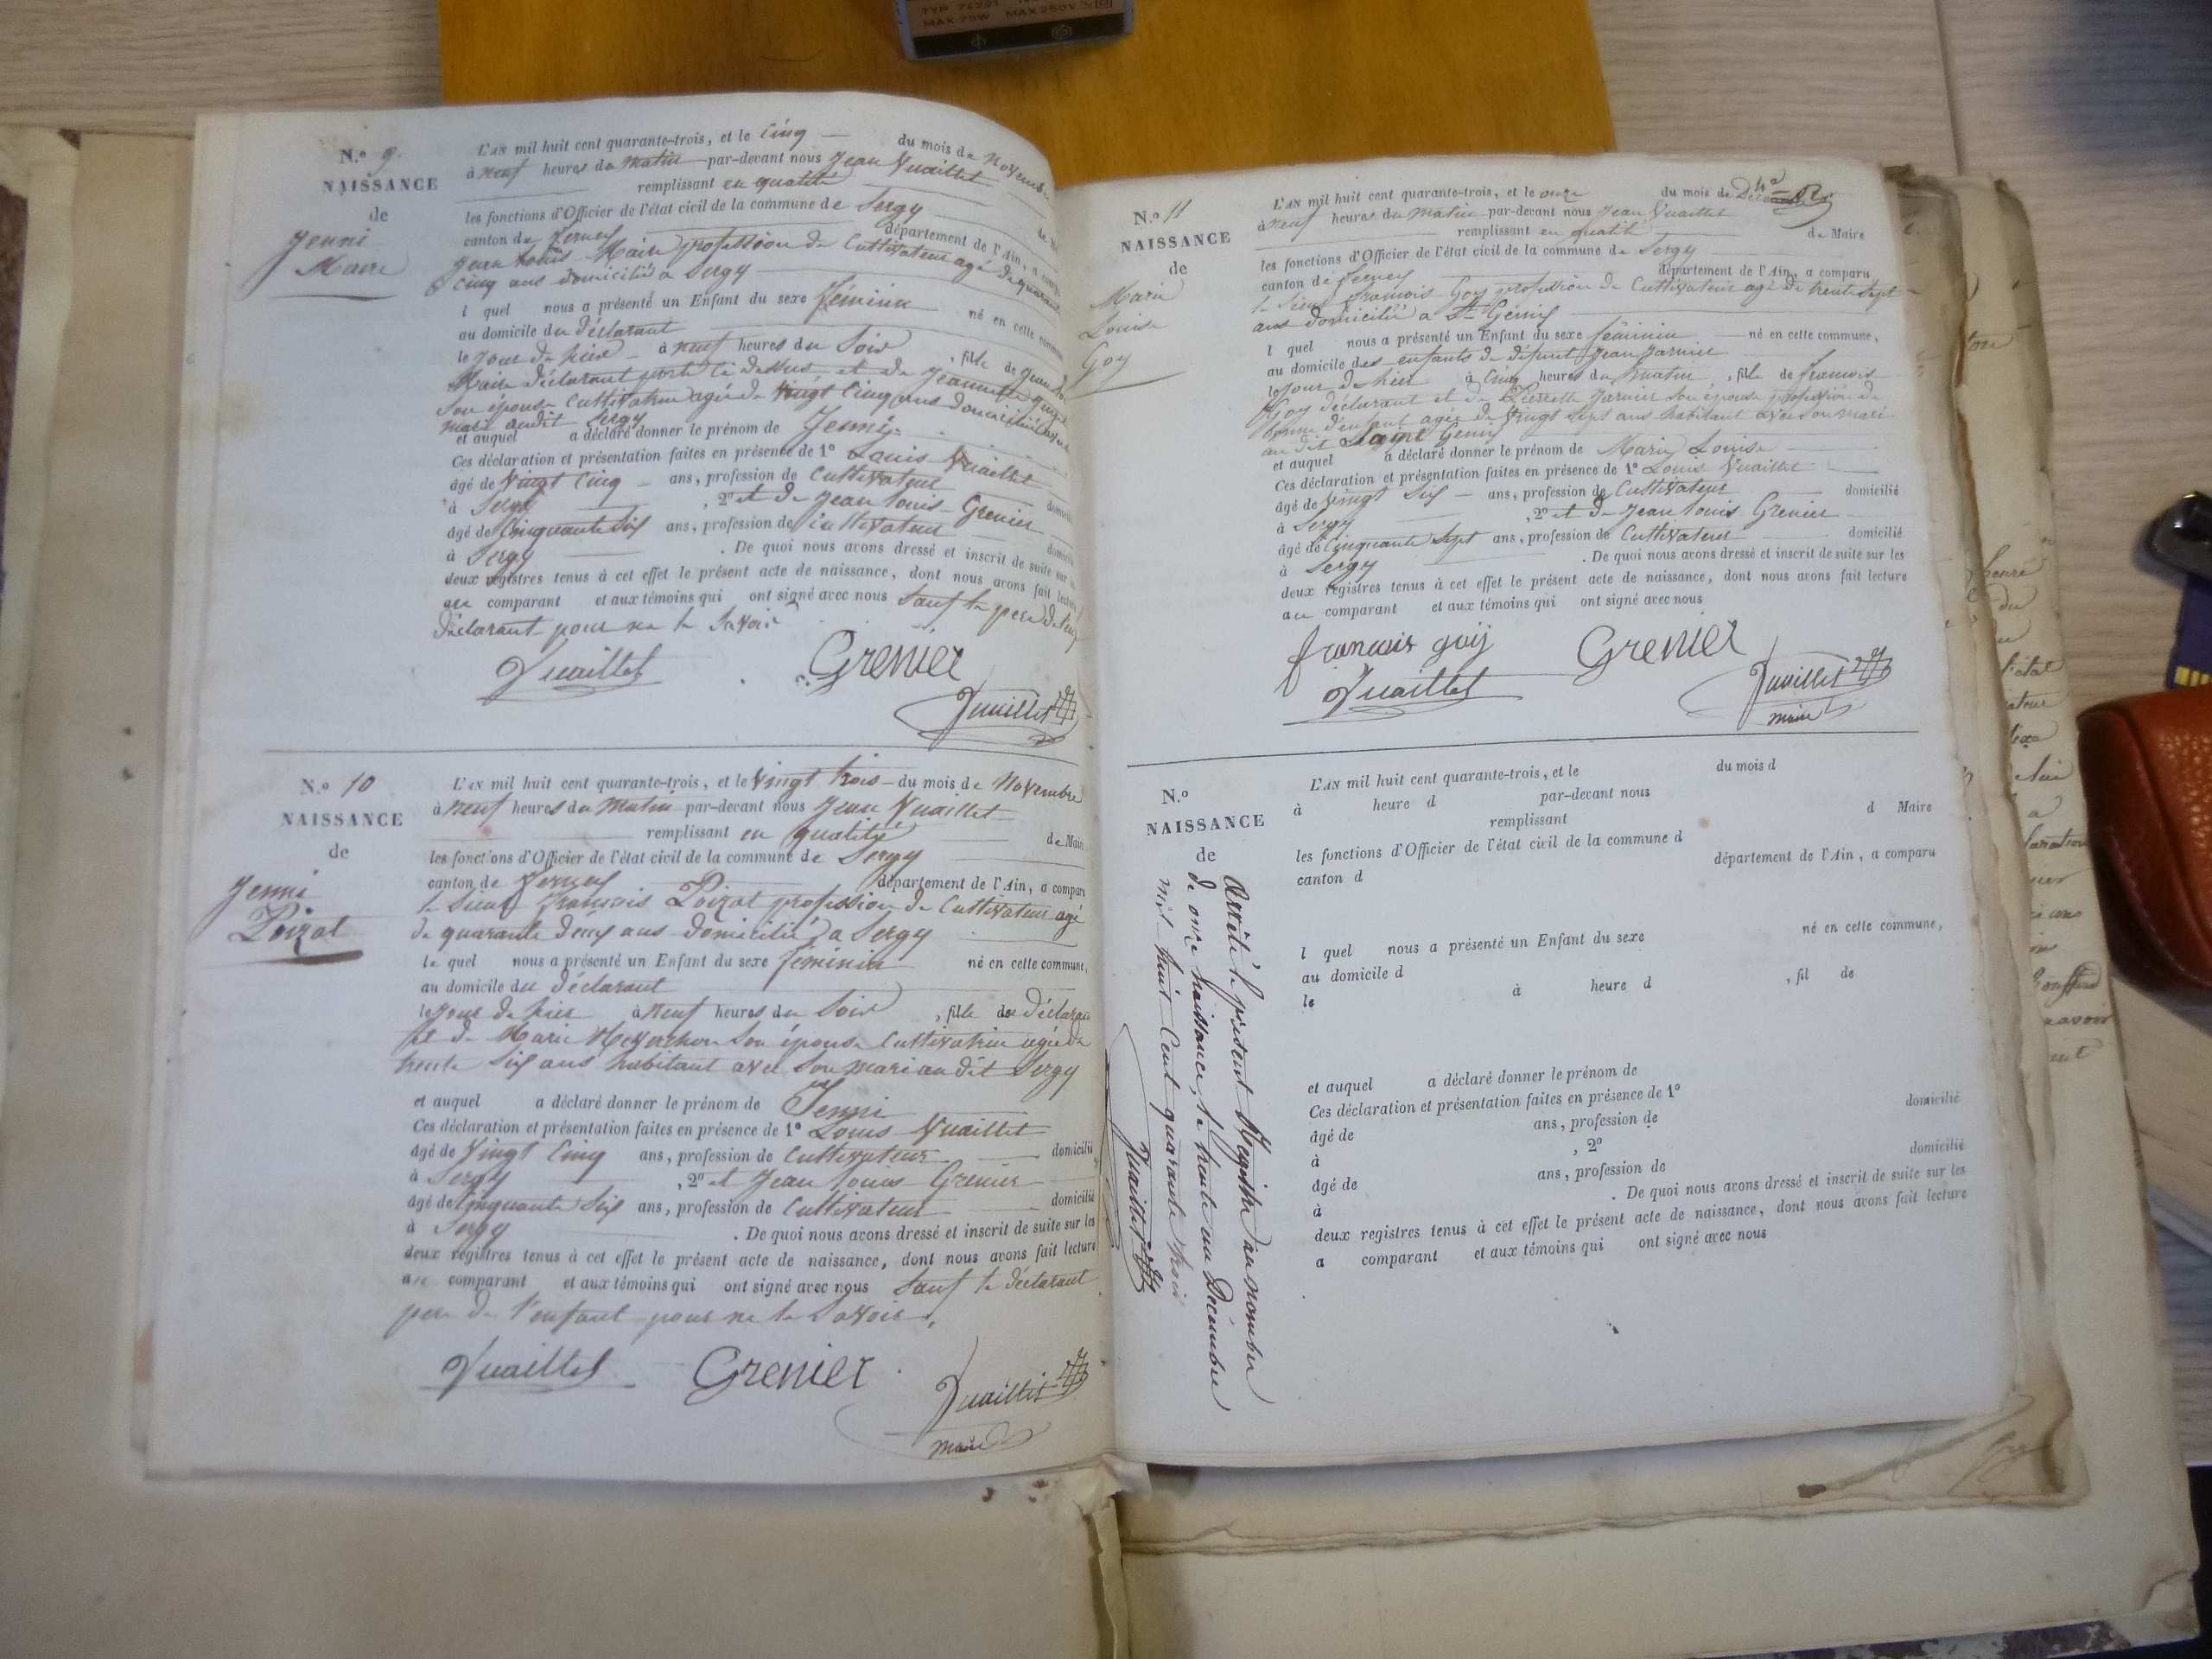 TYP 74201
MAX 75W MAX 250V
N.º 9.
NAISSANCE
de
Jenni
Maire
L'AN mil huit cent quarante-trois, et le Cinq du mois de Novembre
à neuf heures du matin par-devant nous Jean Vuaillet
remplissant en qualité de
les fonctions d'Officier de l'état civil de la commune de Sergy
canton de Ferney département de l'Ain, a comparu
Jean Louis Maire profession de Cultivateur agé de quarante
cinq ans domicilié a Sergy
l quel nous a présenté un Enfant du sexe féminin né en cette commune
au domicile du déclarant
le jour de hier à neuf heures du Soir , fille de Jean
Maire déclarant porté ci dessus et de Jeannette
Son épouse Cultivatrice agée de Vingt Cinq ans domiciliée avec
mari audit Sergy
et auquel a déclaré donner le prénom de Jenni
Ces déclaration et présentation faites en présence de 1º Louis Vuaillet
âgé de Vingt Cinq ans, profession de Cultivateur
à Sergy , 2º et de Jean Louis Grenier
âgé de Cinquante Six ans, profession de Cultivateur
à Sergy . De quoi nous avons dressé et inscrit de suite sur
deux registres tenus à cet effet le présent acte de naissance, dont nous avons fait lecture
au comparant et aux témoins qui ont signé avec nous Sauf le pere
déclarant pour ne le Savoir
Vuaillet Grenier
Vuaillet
N.º 10
NAISSANCE
de
Jenni
Poizat
L'AN mil huit cent quarante-trois, et le Vingt trois du mois de Novembre
à neuf heures du Matin par-devant nous Jean Vuaillet
remplissant en qualité de Maire
les fonctions d'Officier de l'état civil de la commune de Sergy
canton de Ferney département de l'Ain, a comparu
le Sieur François Poizat profession de Cultivateur agé
de quarante deux ans domicilié a Sergy
le quel nous a présenté un Enfant du sexe féminin né en cette commune,
au domicile du déclarant
le jour de hier à neuf heures du Soir , fille de déclarant
et de Marie Son épouse Cultivatrice agée de
trente Six ans habitant avec Son mari au dit Sergy
et auquel a déclaré donner le prénom de Jenni
Ces déclaration et présentation faites en présence de 1º Louis Vuaillet
âgé de Vingt Cinq ans, profession de Cultivateur domicilié
à Sergy , 2º et Jean Louis Grenier
âgé de Cinquante Six ans, profession de Cultivateur domicilié
à Sergy . De quoi nous avons dressé et inscrit de suite sur les
deux registres tenus à cet effet le présent acte de naissance, dont nous avons fait lecture
au comparant et aux témoins qui ont signé avec nous Sauf le déclarant
pere de l'enfant pour ne le Savoir.
Vuaillet Grenier
Vuaillet
maire
N.º 11
NAISSANCE
de
Marie
Louise
Goy
L'AN mil huit cent quarante-trois, et le onze du mois de Décembre
à neuf heures du matin par-devant nous Jean Vuaillet
remplissant en qualité de Maire
les fonctions d'Officier de l'état civil de la commune de Sergy
canton de Ferney département de l'Ain, a comparu
le Sieur francois Goy profession de Cultivateur agé de trente Sept
ans domicilié a St Genis
l quel nous a présenté un Enfant du sexe féminin né en cette commune,
au domicile des enfants de défunt Jean
le jour de hier à Cinq heures du matin , fille de francois
Goy déclarant et de Pierrette Son épouse profession de
bonne d'enfant agée de Vingt Sept ans habitant avec Son mari
au dit Saint Genis
et auquel a déclaré donner le prénom de Marie Louise
Ces déclaration et présentation faites en présence de 1º Louis Vuaillet
âgé de Vingt Six ans, profession de Cultivateur domicilié
à Sergy , 2º et de Jean Louis Grenier
âgé de Cinquante Sept ans, profession de Cultivateur domicilié
à Sergy . De quoi nous avons dressé et inscrit de suite sur les
deux registres tenus à cet effet le présent acte de naissance, dont nous avons fait lecture
au comparant et aux témoins qui ont signé avec nous
francois goÿ Grenier
Vuaillet Vuaillet
maire
N.º
NAISSANCE
de
Arrêté le présent Registre au nombre
de onze naissance, le trente un Décembre
mil huit Cent quarante trois
Vuaillet
L'AN mil huit cent quarante-trois, et le du mois d
à heure d par-devant nous
remplissant d Maire
les fonctions d'Officier de l'état civil de la commune d
canton d département de l'Ain, a comparu
l quel nous a présenté un Enfant du sexe né en cette commune,
au domicile d
le à heure d , fil de
et auquel a déclaré donner le prénom de
Ces déclaration et présentation faites en présence de 1º
âgé de ans, profession de domicilié
à , 2º
âgé de ans, profession de domicilié
à . De quoi nous avons dressé et inscrit de suite sur les
deux registres tenus à cet effet le présent acte de naissance, dont nous avons fait lecture
a comparant et aux témoins qui ont signé avec nous